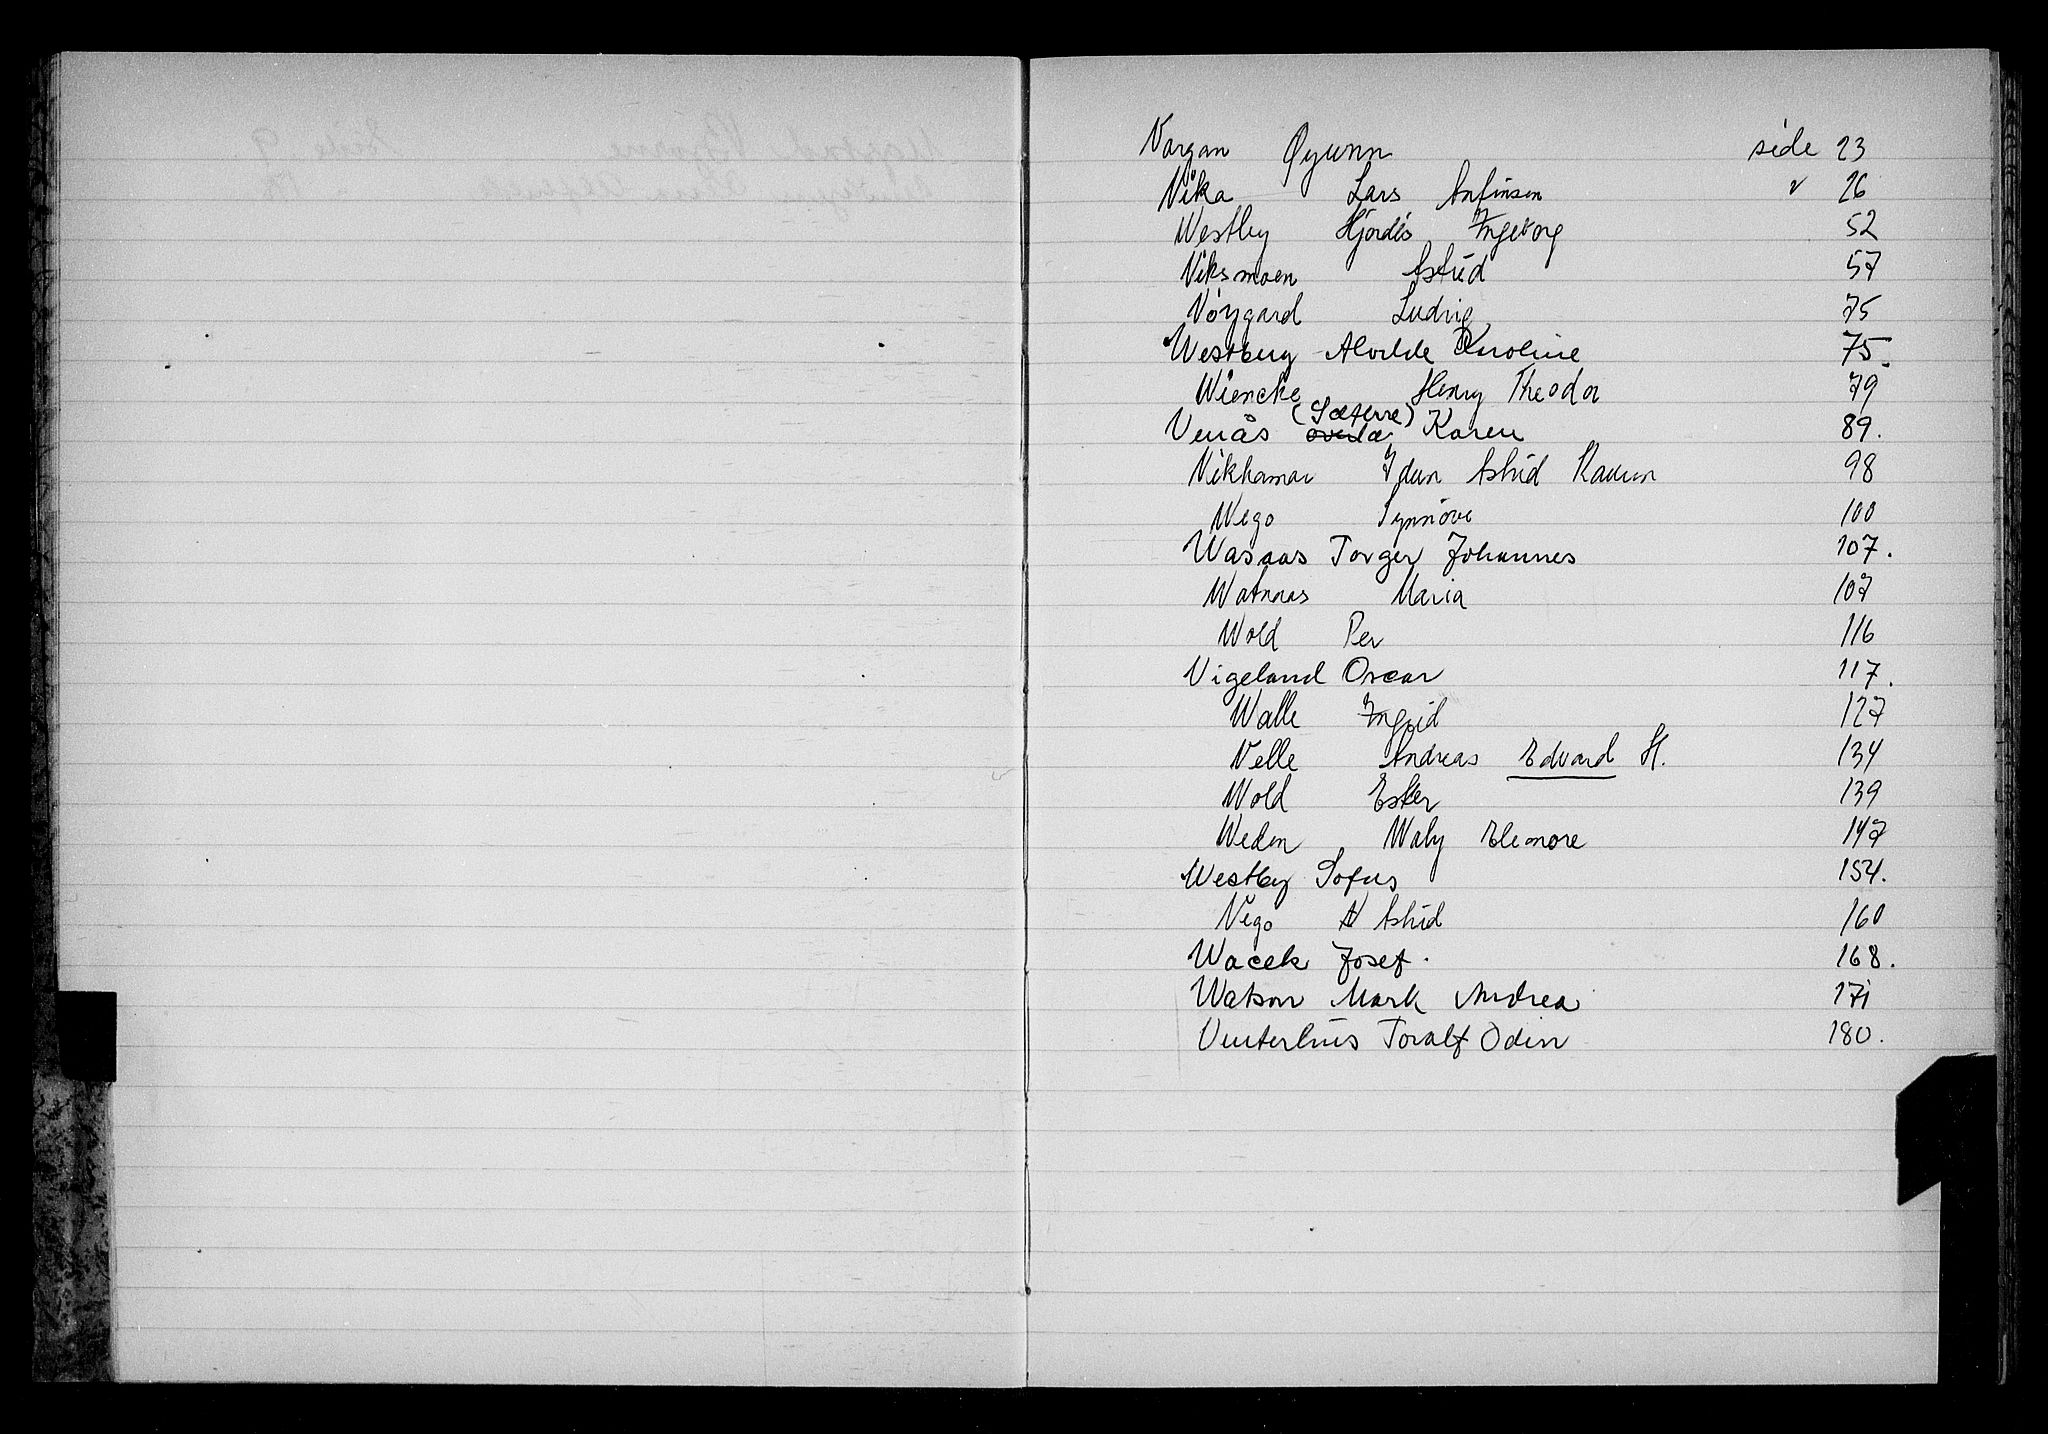 Vargan Øyunn side 23
Vika Lars Anfinsen " 26
Westby Hjördis Ingeborg 52
Viksmoen Astrid 57
Vøygard Ludvig 75
Westberg Alvilde Karoline 75.
Wiencke Henry Theodor 79
Venås (Sæterre) Karen 89.
Vikhamar Idun Astrid Raurn 98
Wego Synnöve 100
Wasaas Torger Johannes 107.
Watnaas Maria 107
Wold Per 116
Vigeland Oscar 117.
Walle Ingrid 127
Velle Andreas Edvard H. 134
Wold Ester 139
Weden Waly Eleonore 147
Westby Sofus 154.
Vego Astrid 160
Wacek Josef. 168.
Watson Mark Andrea 171
Venterhus Toralf Odin 180.